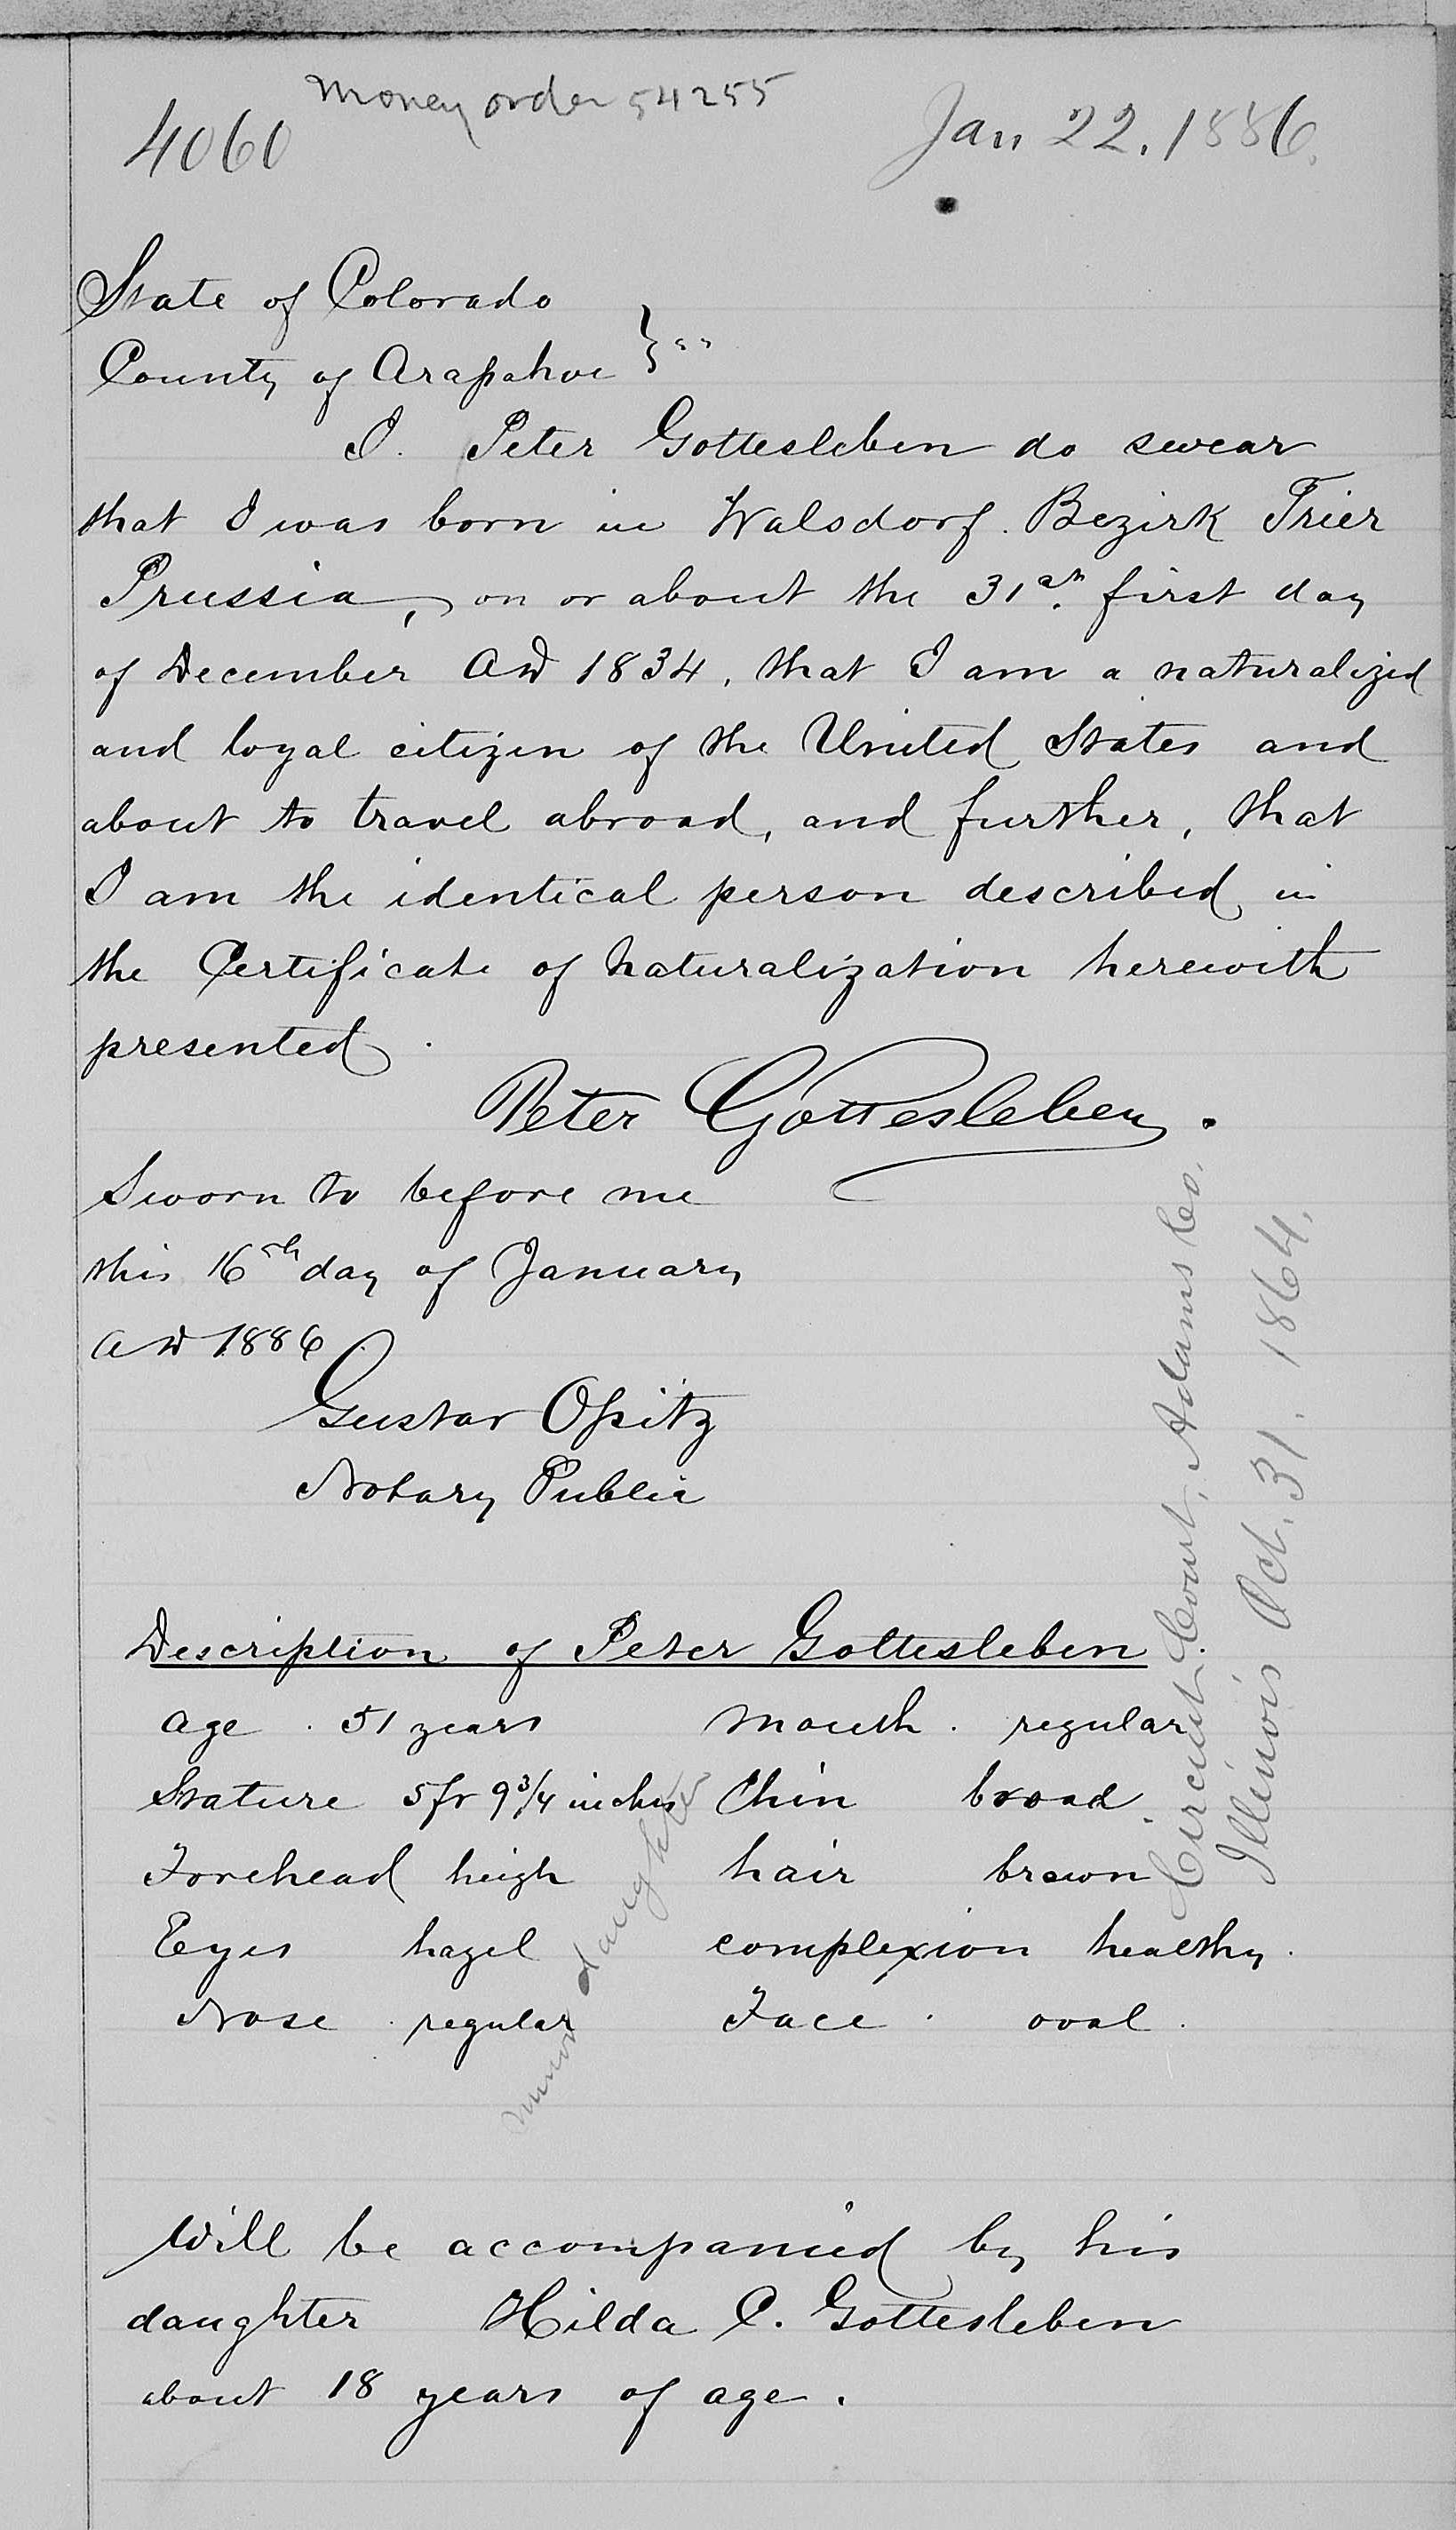 Money order 54255
4060
Jan 22. 1886.
State of Colorado
County of Arapahoe } ss
I. Peter Gottesleben do swear
that I was born in Walsdorf. Bezirk Trier
Prussia, on or about the 31st. first day
of December AD 1834, that I am a naturalized
and loyal citizen of the United States and
about to travel abroad, and further, that
I am the identical person described in
the Certificate of Naturalization herewith
presented.
Peter Gottesleben.
Sworn to before me
this 16th day of January
AD 1886.
Gustav Opitz
Notary Public
Circuit Court, Adams Co.
Illinois Oct. 31. 1864.
Description of Peter Gottesleben
age . 51 years mouth . regular
Stature 5 ft 9 3/4 inches Chin broad.
Forehead heigh hair brown
Eyes hazel complexion healthy.
Nose . regular Face . oval.
minor daughter
Will be accompanied by his
daughter Hilda C. Gottesleben
about 18 years of age.